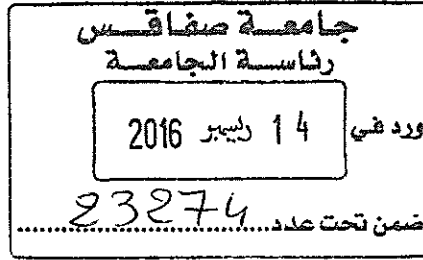 جامعة صفاقس
رئاسة الجامعة
ورد في 14 ديسمبر 2016
ضمن تحت عدد 23274